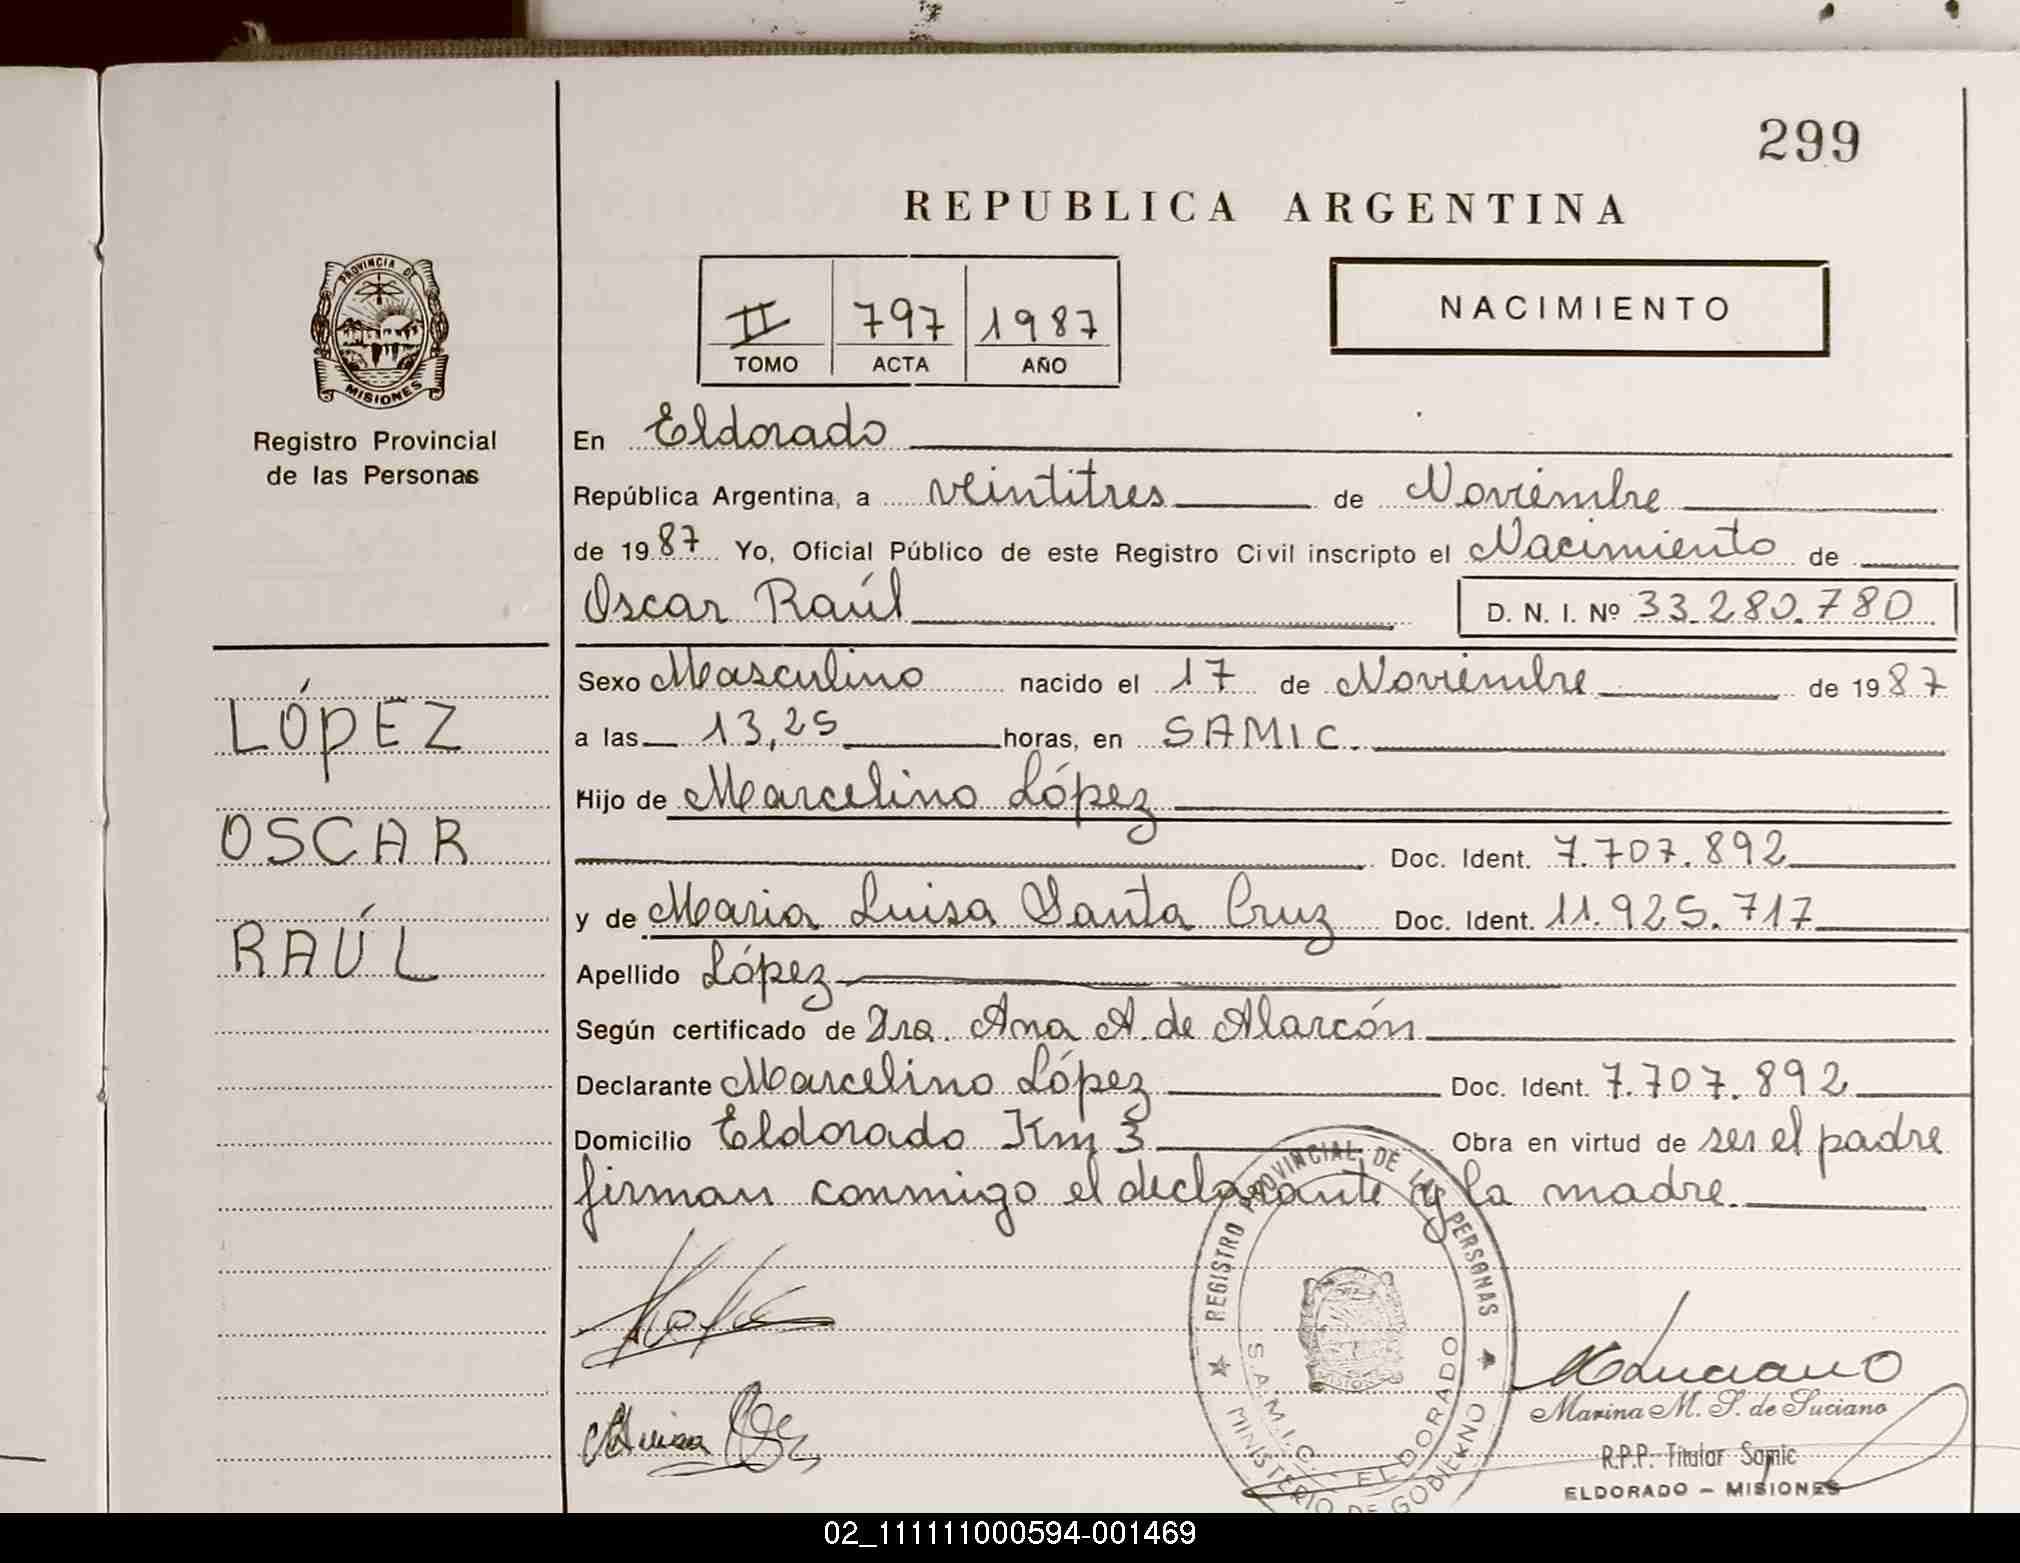 299
REPUBLICA ARGENTINA
PROVINCIA DE
MISIONES
Registro Provincial
de las Personas
II 797 1987
TOMO ACTA AÑO
NACIMIENTO
En Eldorado
República Argentina, a veintitres de Noviembre
de 1987 Yo, Oficial Público de este Registro Civil inscripto el Nacimiento de
Oscar Raúl D. N. I. Nº 33.280.780
LÓPEZ
OSCAR
RAÚL
Sexo Masculino nacido el 17 de Noviembre de 1987
a las 13,25 horas, en SAMIC.
Hijo de Marcelino López
Doc. Ident. 7.707.892
y de Maria Luisa Santa Cruz Doc. Ident. 11.925.717
Apellido López
Según certificado de Dra. Ana A. de Alarcón
Declarante Marcelino López Doc. Ident. 7.707.892
Domicilio Eldorado Km 3 Obra en virtud de ser el padre
firman conmigo el declarante y la madre
REGISTRO PROVINCIAL DE LAS PERSONAS
S.A.M.I.C. ELDORADO
MINISTERIO DE GOBIERNO
MISIONES
Luciano
Marina M. S. de Luciano
R.P.P. Titular Samic
ELDORADO - MISIONES
02_111111000594-001469